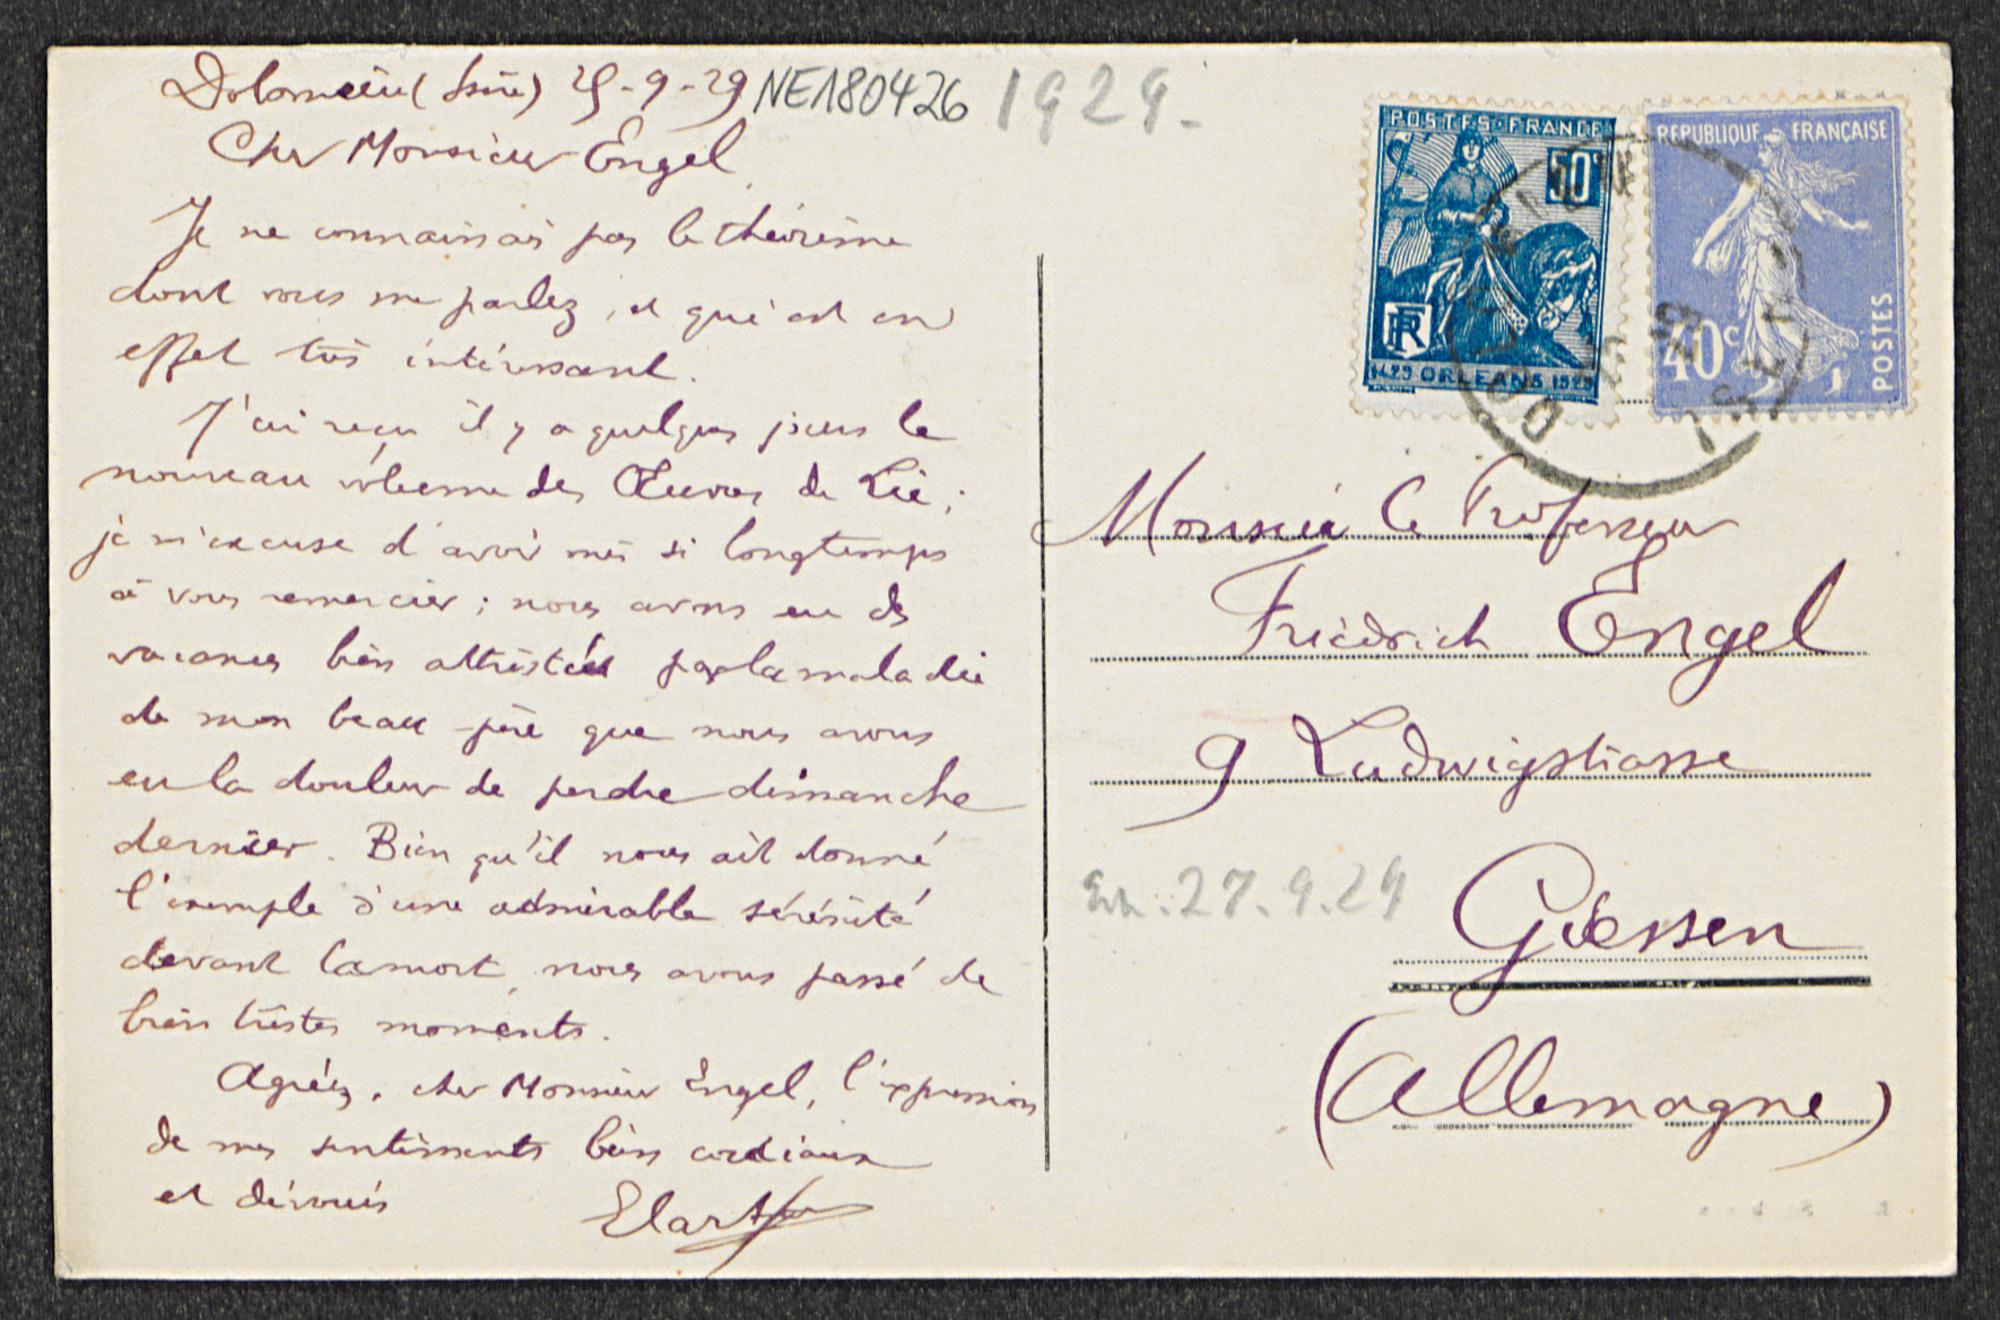 Dolomieu (Isère) 25-9-29 NE180426 1929.
Cher Monsieur Engel
Je ne connaissais pas le théorème
dont vous me parlez, et qui est en
effet très intéressant.
J'ai reçu il y a quelques jours le
nouveau volume des Œuvres de Lie ;
je m'excuse d'avoir mis si longtemps
à vous remercier ; nous avons eu des
vacances bien attristées par la maladie
de mon beau-père que nous avons
eu la douleur de perdre dimanche
dernier. Bien qu'il nous ait donné
l'exemple d'une admirable sérénité
devant la mort, nous avons passé de
bien tristes moments.
Agréez, cher Monsieur Engel, l'expression
de mes sentiments bien cordiaux
et dévoués
E Cartan
POSTES-FRANCE
50c
RF
1429 ORLEANS 1929
REPUBLIQUE FRANÇAISE
40c
POSTES
Monsieur le Professeur
Friedrich Engel
9 Ludwigstrasse
27.9.29
Giessen
(Allemagne)